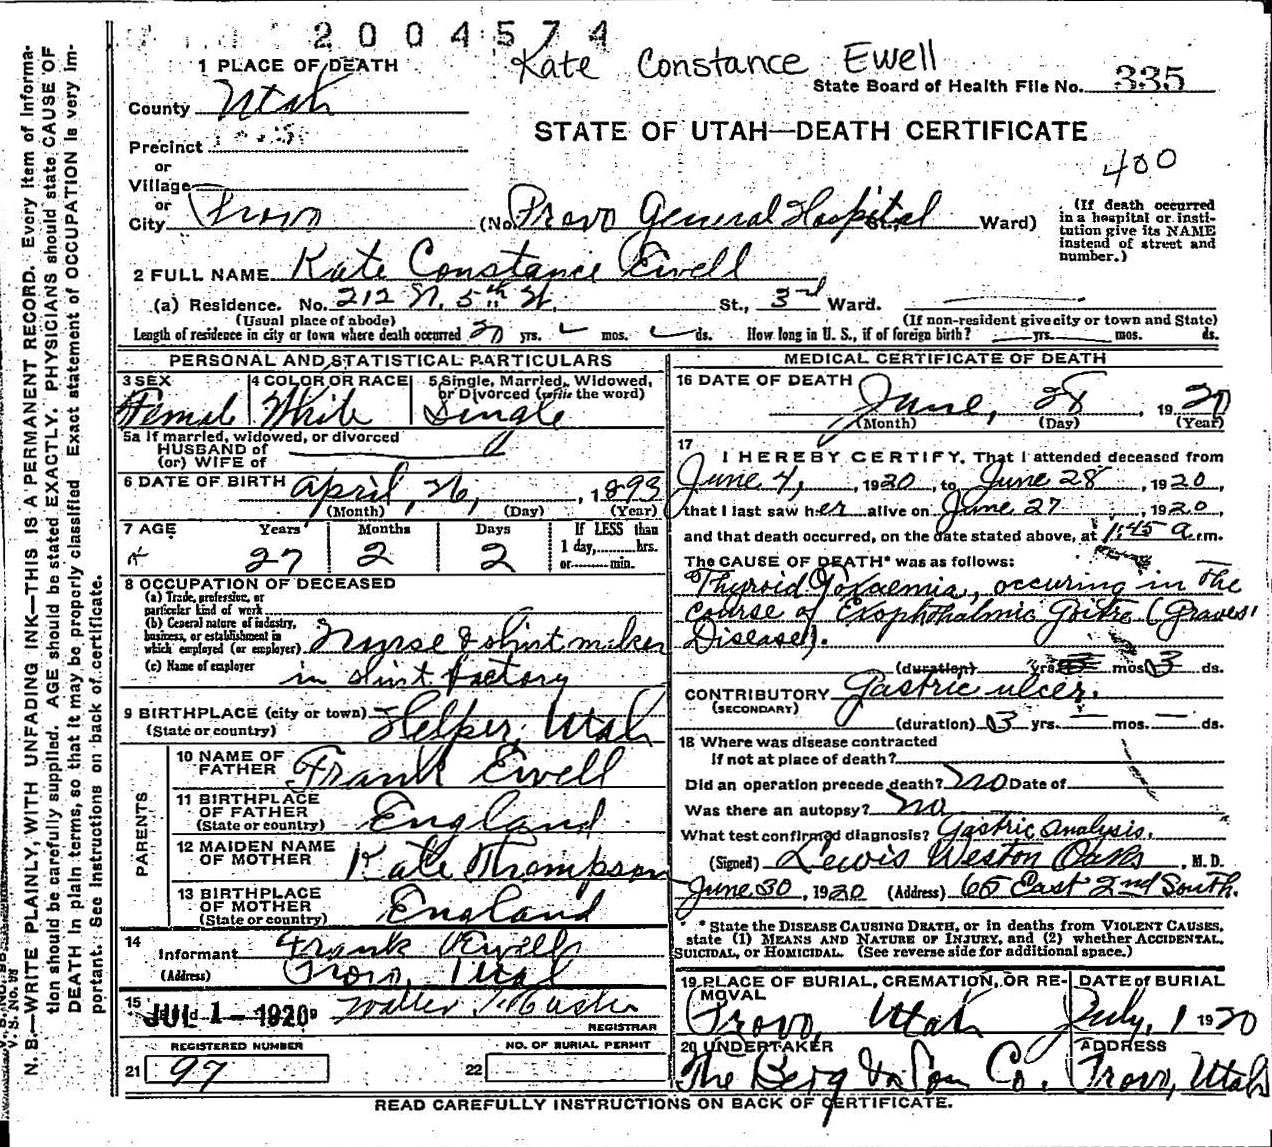 2004574
Kate Constance Ewell
1 PLACE OF DEATH
State Board of Health File No. 335
County Utah
STATE OF UTAH—DEATH CERTIFICATE
Precinct
or
Village
400
or
City Provo (No. Provo General Hospital St., Ward)
(If death occurred in a hospital or insti-
tution give its NAME
instead of street and
number.)
2 FULL NAME Kate Constance Ewell
(a) Residence. No. 212 N. 5th W. St., 3rd Ward.
(Usual place of abode) (If non-resident give city or town and State)
Length of residence in city or town where death occurred 20 yrs. mos. ds. How long in U. S., if of foreign birth? yrs. mos. ds.
PERSONAL AND STATISTICAL PARTICULARS
3 SEX 4 COLOR OR RACE 5 Single, Married, Widowed,
or Divorced (write the word)
Female White Single
5a If married, widowed, or divorced
HUSBAND of
(or) WIFE of
6 DATE OF BIRTH April, 26, 1893
(Month) (Day) (Year)
7 AGE Years Months Days If LESS than
27 2 2 1 day, hrs.
or min.
8 OCCUPATION OF DECEASED
(a) Trade, profession, or
particular kind of work
(b) General nature of industry,
business, or establishment in
which employed (or employer) Nurse & shirt maker
(c) Name of employer in shirt factory
9 BIRTHPLACE (city or town) Helper, Utah
(State or country)
PARENTS
10 NAME OF
FATHER Frank Ewell
11 BIRTHPLACE
OF FATHER England
(State or country)
12 MAIDEN NAME
OF MOTHER Kate Thompson
13 BIRTHPLACE
OF MOTHER England
(State or country)
14 Informant Frank Ewell
(Address) Provo, Utah
15 JUL 1 - 1920 Walter
REGISTRAR
REGISTERED NUMBER NO. OF BURIAL PERMIT
21 97 22
MEDICAL CERTIFICATE OF DEATH
16 DATE OF DEATH June, 28, 1920
(Month) (Day) (Year)
17
I HEREBY CERTIFY, That I attended deceased from
June 4, 1920, to June 28, 1920,
that I last saw her alive on June 27, 1920,
and that death occurred, on the date stated above, at 1:45 a.m.
The CAUSE OF DEATH* was as follows:
Thyroid Toxaemia, occuring in the
course of Exophthalmic Goitre (Graves'
Disease).
(duration) yrs. mos. 3 ds.
CONTRIBUTORY Gastric ulcer.
(SECONDARY)
(duration) 3 yrs. — mos. — ds.
18 Where was disease contracted
If not at place of death?
Did an operation precede death? no Date of
Was there an autopsy? no
What test confirmed diagnosis? Gastric analysis.
(Signed) Lewis Weston Oaks, M. D.
June 30, 1920 (Address) 65 East 2nd South.
* State the DISEASE CAUSING DEATH, or in deaths from VIOLENT CAUSES,
state (1) MEANS AND NATURE OF INJURY, and (2) whether ACCIDENTAL,
SUICIDAL, or HOMICIDAL. (See reverse side for additional space.)
19 PLACE OF BURIAL, CREMATION, OR RE-
MOVAL DATE OF BURIAL
Provo, Utah July, 1 1920
20 UNDERTAKER ADDRESS
The Berg & Son Co. Provo, Utah
READ CAREFULLY INSTRUCTIONS ON BACK OF CERTIFICATE.
V. S. No.
N. B.—WRITE PLAINLY, WITH UNFADING INK—THIS IS A PERMANENT RECORD. Every item of informa-
tion should be carefully supplied. AGE should be stated EXACTLY. PHYSICIANS should state CAUSE OF
DEATH in plain terms, so that it may be properly classified. Exact statement of OCCUPATION is very im-
portant. See Instructions on back of certificate.